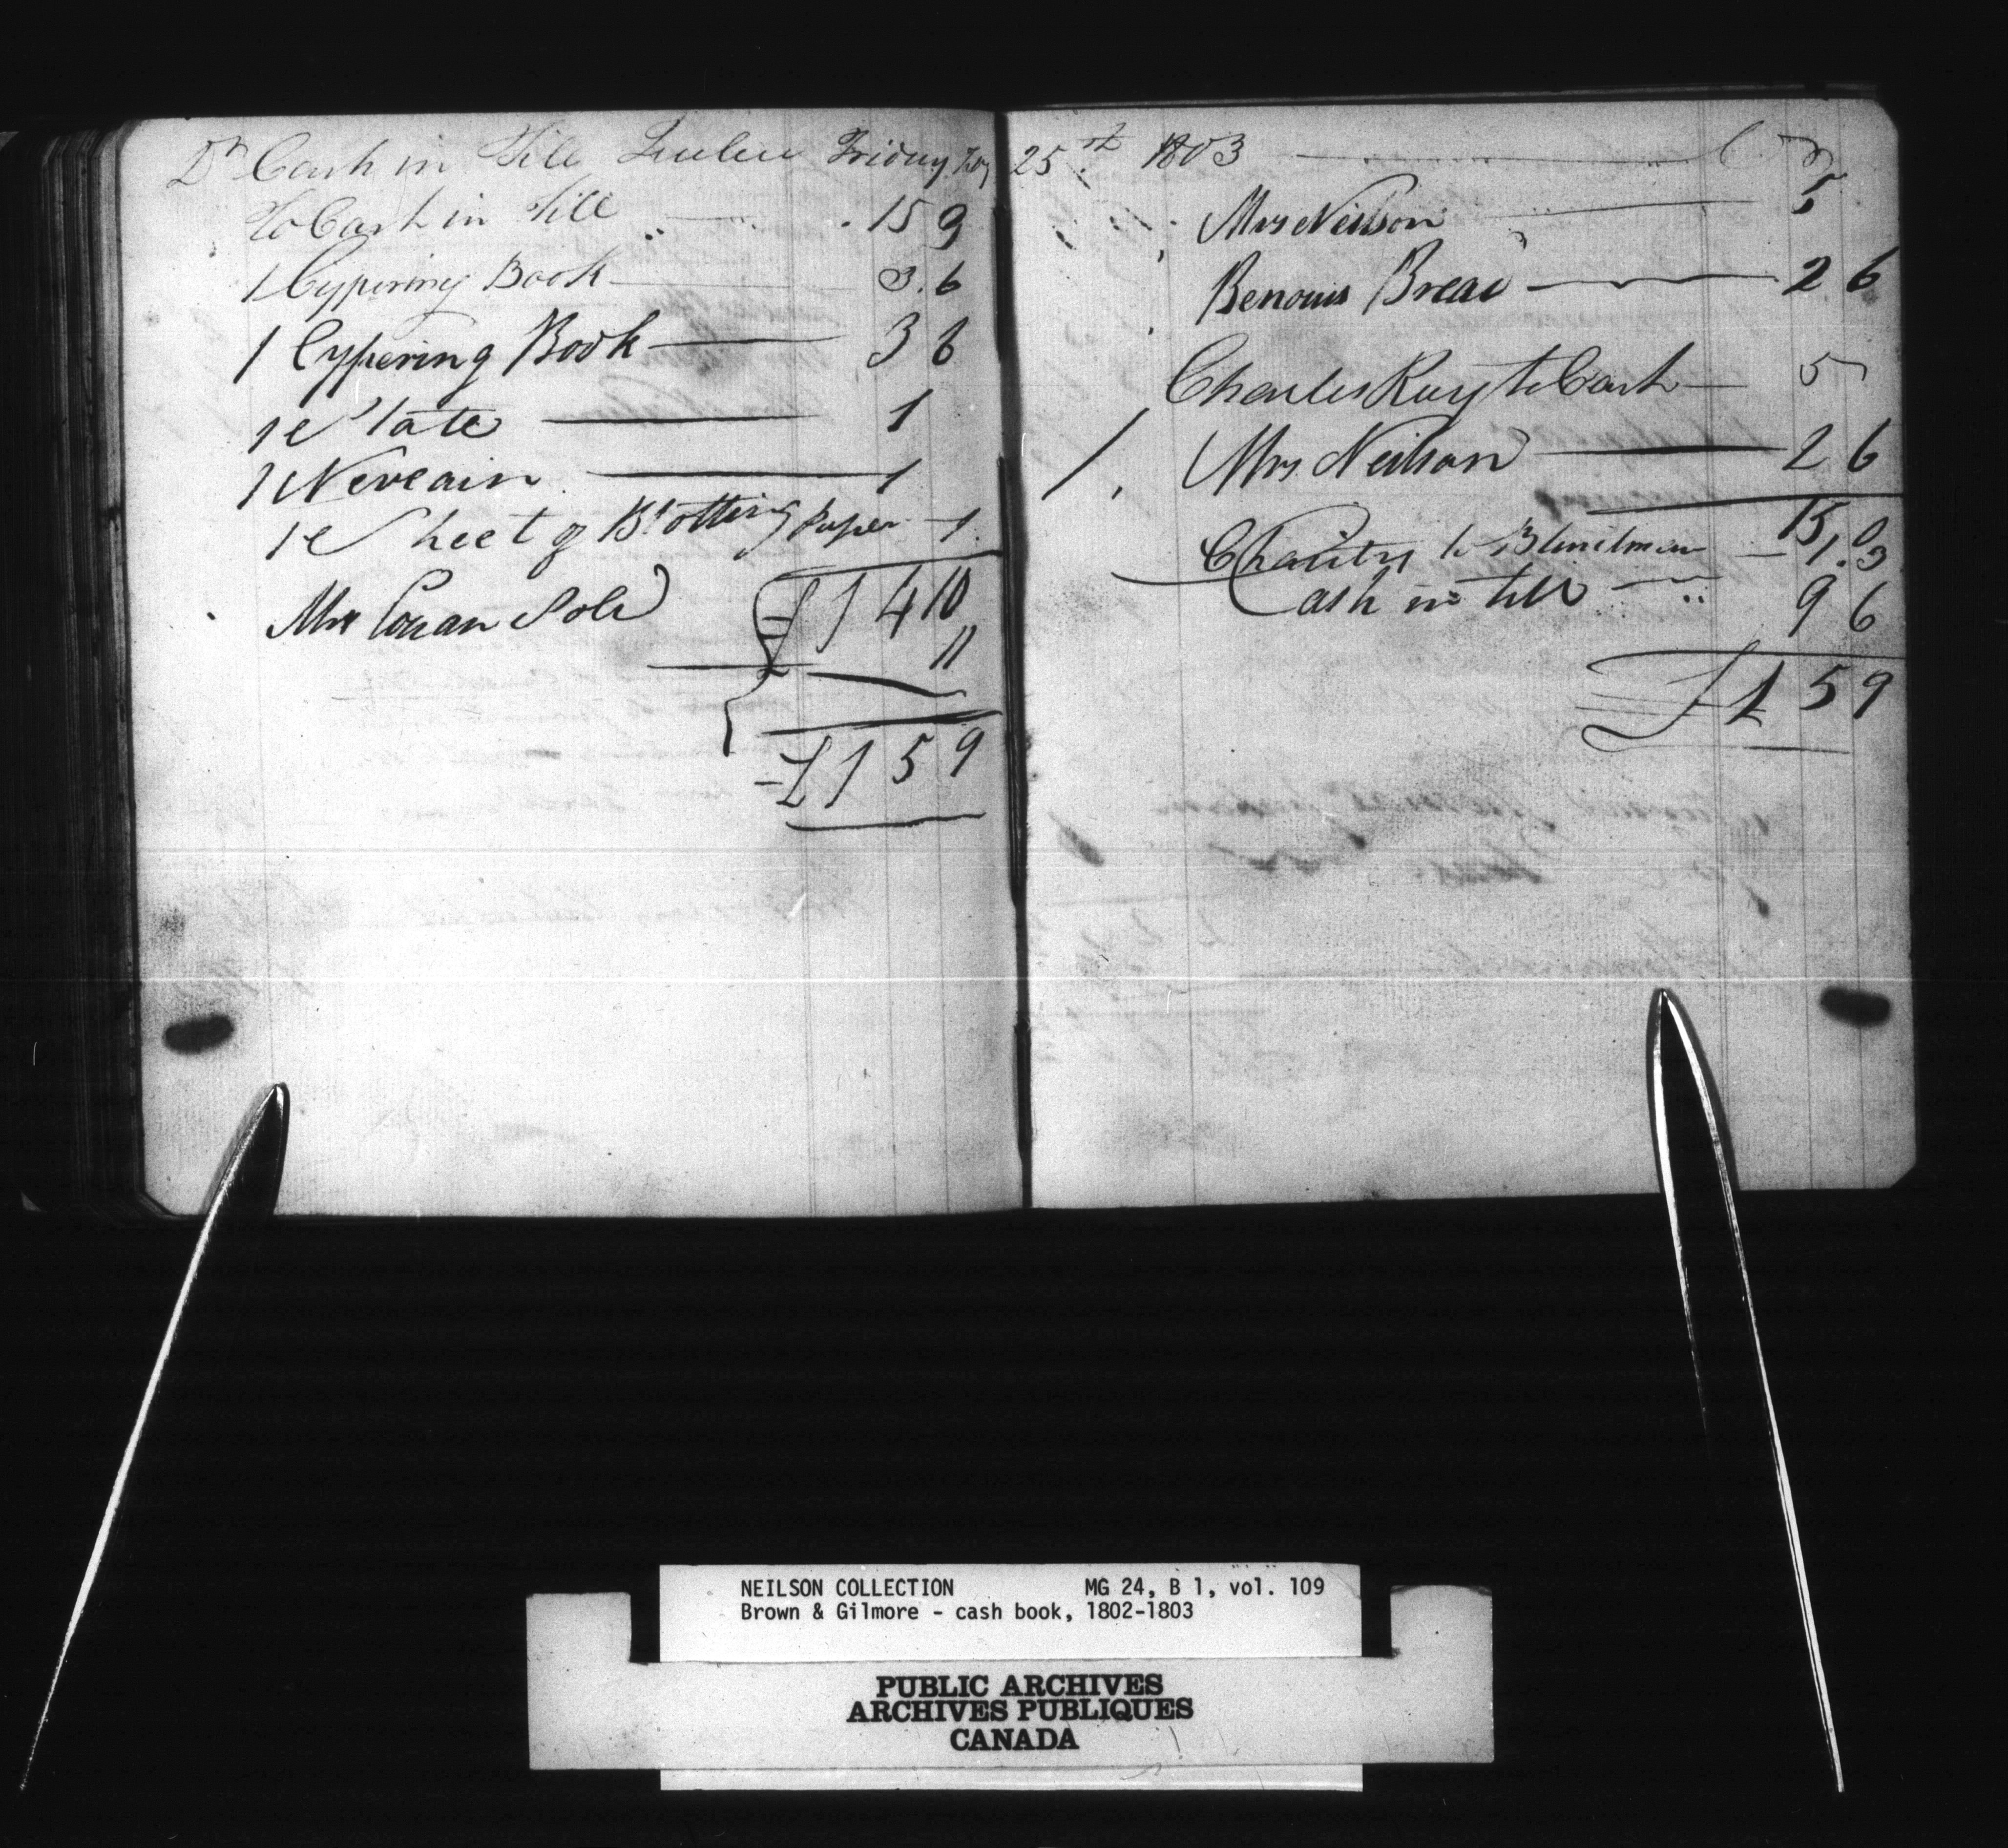 Dr Cash in Till Quebec Friday Feby
To Cash in Till 15 9
1 Cypering Book 3.6
1 Cypering Book 3 6
1 Slate 1
1 Neveain 1
1 Sheet of Blotting Paper 1
£1 4 10
Mrs Cowan Sole 11
£1 5 9
25th 1803 Cr
Mrs Neilson 5
Benouis Bread 2 6
Charles Roy to Cash 5
1. Mrs Neilson 2 6
15, 0
Charity to Blindman 1.3
Cash in till 9 6
£1 5 9
NEILSON COLLECTION MG 24, B 1, vol. 109
Brown & Gilmore - cash book, 1802-1803
PUBLIC ARCHIVES
ARCHIVES PUBLIQUES
CANADA